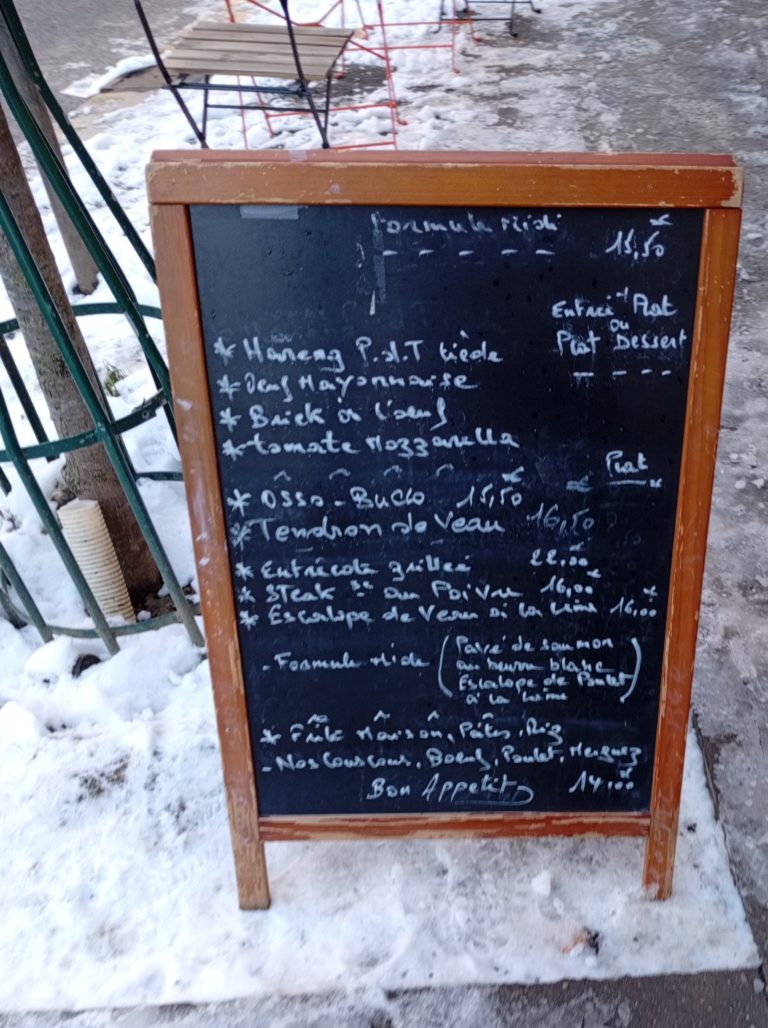 Formule Midi 15,50 €
Entrée + Plat
ou
Plat Dessert
* Hareng P.d.T tiède
* Oeuf Mayonnaise
* Brick à l'oeuf
* tomate Mozzarella
Plat
* OSSO-Bucco 15,50 €
* Tendron de Veau 16,50 €
* Entrecote grillée 22,00 €
* STeak au Poivre 16,00 €
* Escalope de Veau à la crème 16,00 €
- Formule Midi (Pavé de saumon
au beurre blanc
Escalope de Poulet
à la crème)
* Frite Maison, Pâtes, Riz
- Nos Couscous, Boeuf, Poulet, Merguez
Bon Appetit 14,00 €